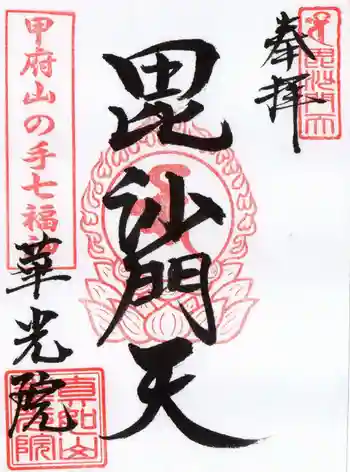 奉拝
毘沙門天
甲府山の手七福神
華光院